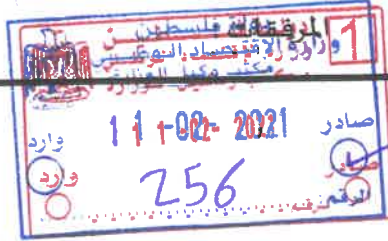 المرفقات 1
دولة فلسطين
وزارة الاقتصاد الوطني
مكتب وكيل الوزارة
صادر 11-02-2021 وارد
صادر وارد
الرقم 256